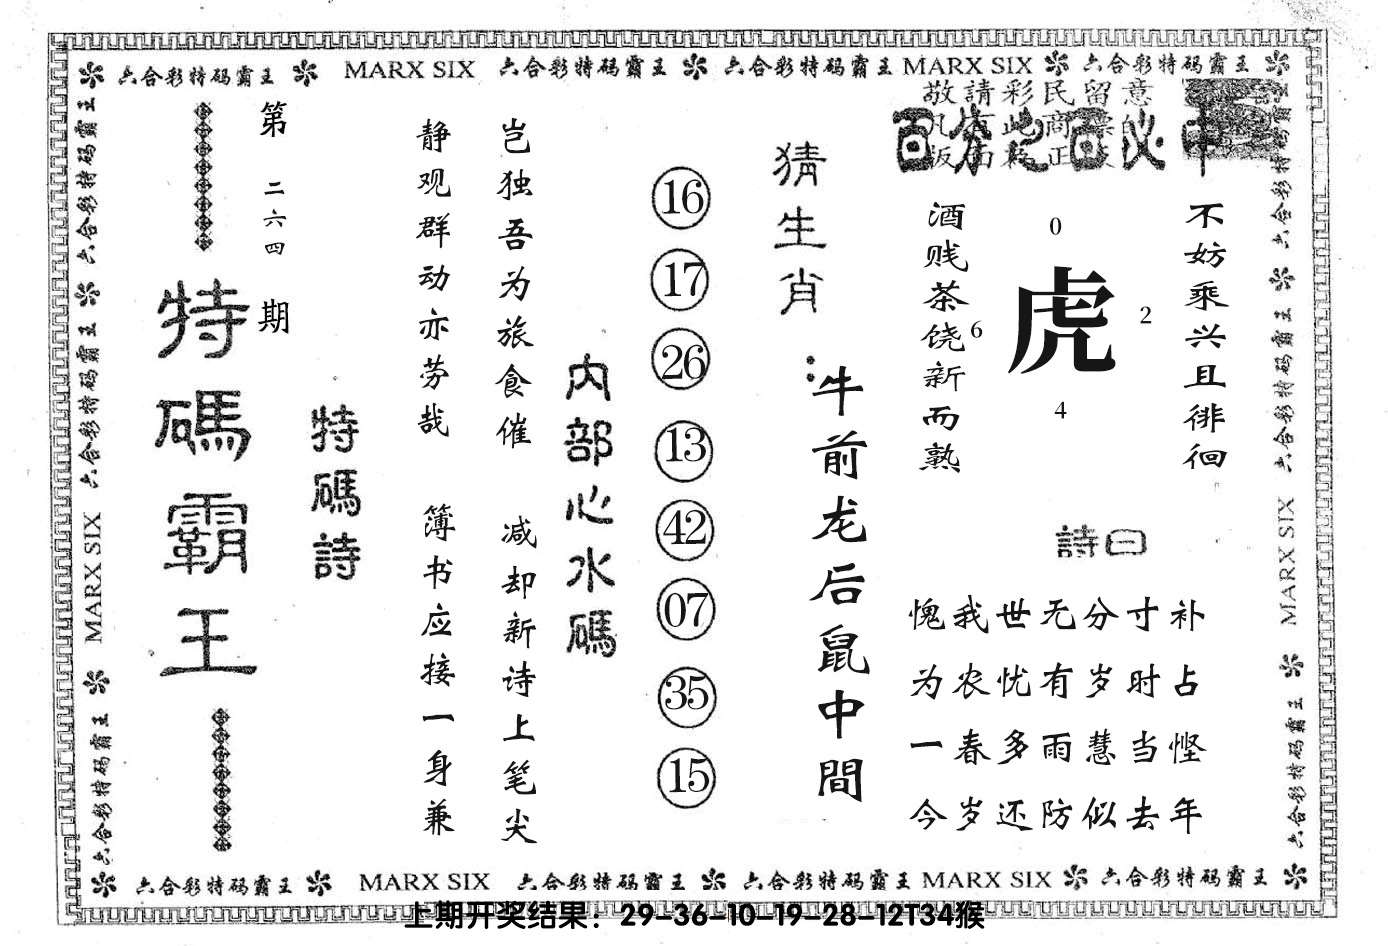 六合彩特码霸王 MARX SIX 六合彩特码霸王 六合彩特码霸王 MARX SIX 六合彩特码霸王
敬請彩民留意
百分之百必中
第二六四期
特碼霸王
特碼詩
静观群动亦劳哉 簿书应接一身兼
岂独吾为旅食催 减却新诗上笔尖
内部心水碼
16
17
26
13
42
07
35
15
猜生肖:
牛前龙后鼠中間
酒贱茶饶新而熟
0
6 虎 2
4
不妨乘兴且徘徊
詩曰
愧我世无分寸补
为农忧有岁时占
一春多雨慧当悭
今岁还防似去年
六合彩特码霸王 MARX SIX 六合彩特码霸王
六合彩特码霸王 MARX SIX 六合彩特码霸王
六合彩特码霸王 MARX SIX 六合彩特码霸王 六合彩特码霸王 MARX SIX 六合彩特码霸王
上期开奖结果：29-36-10-19-28-12T34猴